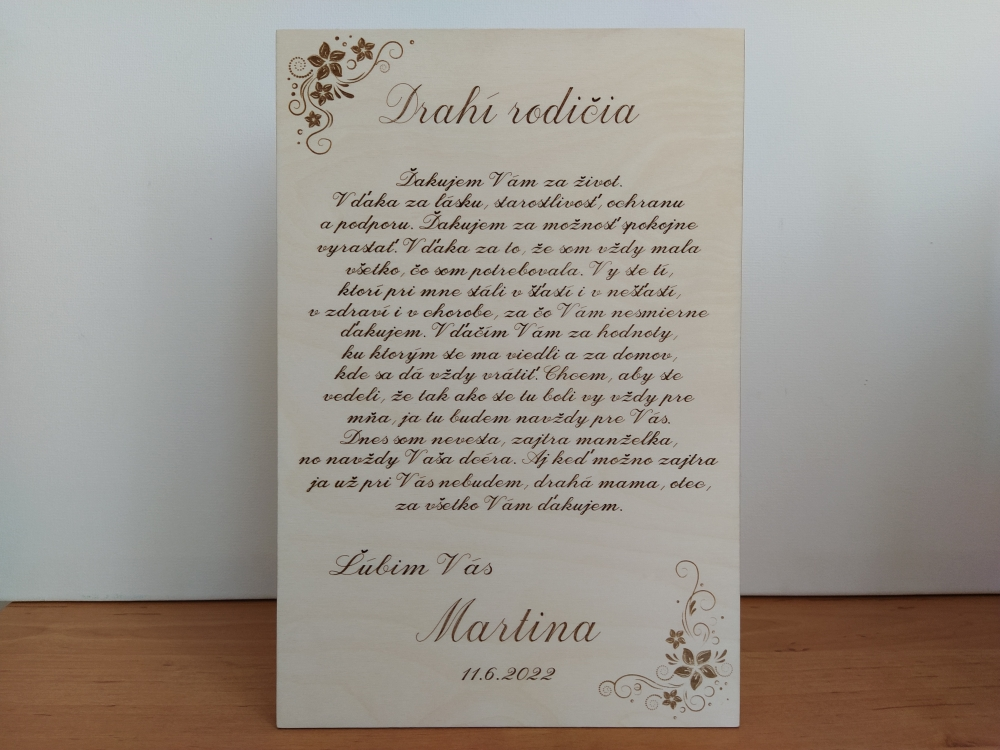 Drahí rodičia
Ďakujem Vám za život.
Vďaka za lásku, starostlivosť, ochranu
a podporu. Ďakujem za možnosť spokojne
vyrastať. Vďaka za to, že som vždy mala
všetko, čo som potrebovala. Vy ste tí,
ktorí pri mne stáli v šťastí i v nešťastí,
v zdraví i v chorobe, za čo Vám nesmierne
ďakujem. Vďačím Vám za hodnoty,
ku ktorým ste ma viedli a za domov,
kde sa dá vždy vrátiť. Chcem, aby ste
vedeli, že tak ako ste tu boli vy vždy pre
mňa, ja tu budem navždy pre Vás.
Dnes som nevesta, zajtra manželka,
no navždy Vaša dcéra. Aj keď možno zajtra
ja už pri Vás nebudem, drahá mama, otec,
za všetko Vám ďakujem.
Ľúbim Vás
Martina
11.6.2022